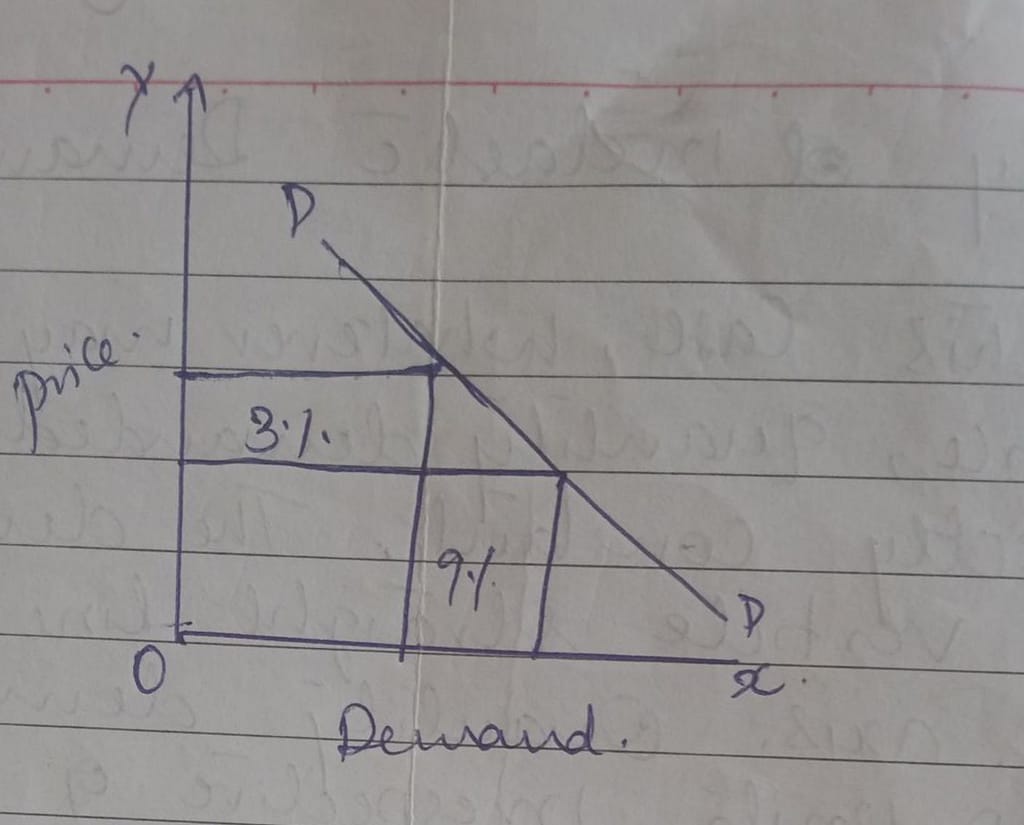 Y
D
Price.
3%.
9%.
D
O
x.
Demand.